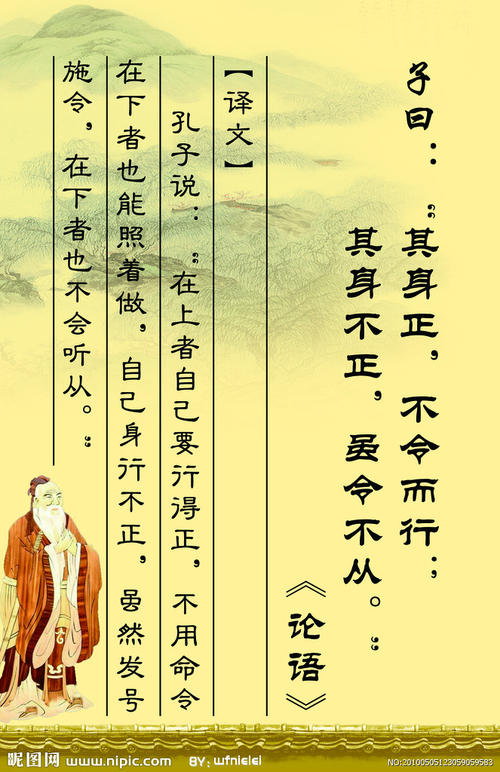 子曰："其身正，不令而行；
其身不正，虽令不从。"
《论语》
【译文】
孔子说："在上者自己要行得正，不用命令
在下者也能照着做，自己身行不正，虽然发号
施令，在下者也不会听从。"
昵图网 www.nipic.com BY：wfnielei NO:20100505123059059583